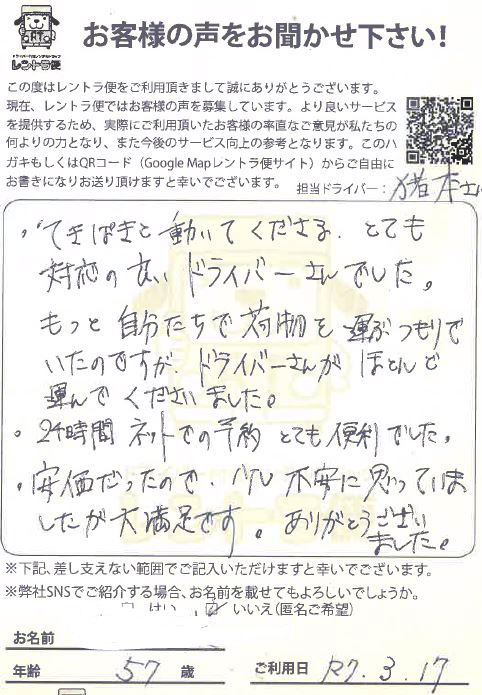 ドライバー付レンタルトラック
レントラ便
お客様の声をお聞かせ下さい!
この度はレントラ便をご利用頂きまして誠にありがとうございます。
現在、レントラ便ではお客様の声を募集しています。より良いサービス
を提供するため、実際にご利用頂いたお客様の率直なご意見が私たちの
何よりの力となり、また今後のサービス向上の参考となります。このハ
ガキもしくはQRコード（Google Mapレントラ便サイト）からご自由に
お書きになりお送り頂けますと幸いでございます。
担当ドライバー：猪本さん
・てきぱきと動いてくださる、とても
対応の良いドライバーさんでした。
もっと自分たちで荷物を運ぶつもりで
いたのですが、ドライバーさんがほとんど
運んでくださいました。
・24時間ネットでの予約とても便利でした。
・安価だったので、少し不安に思っていま
したが大満足です。ありがとうござい
ました。
※下記、差し支えない範囲でご記入いただけますと幸いでございます。
※弊社SNSでご紹介する場合、お名前を載せてもよろしいでしょうか。
□ はい ☑ いいえ(匿名ご希望)
お名前
年齢 57 歳 ご利用日 R7.3.17